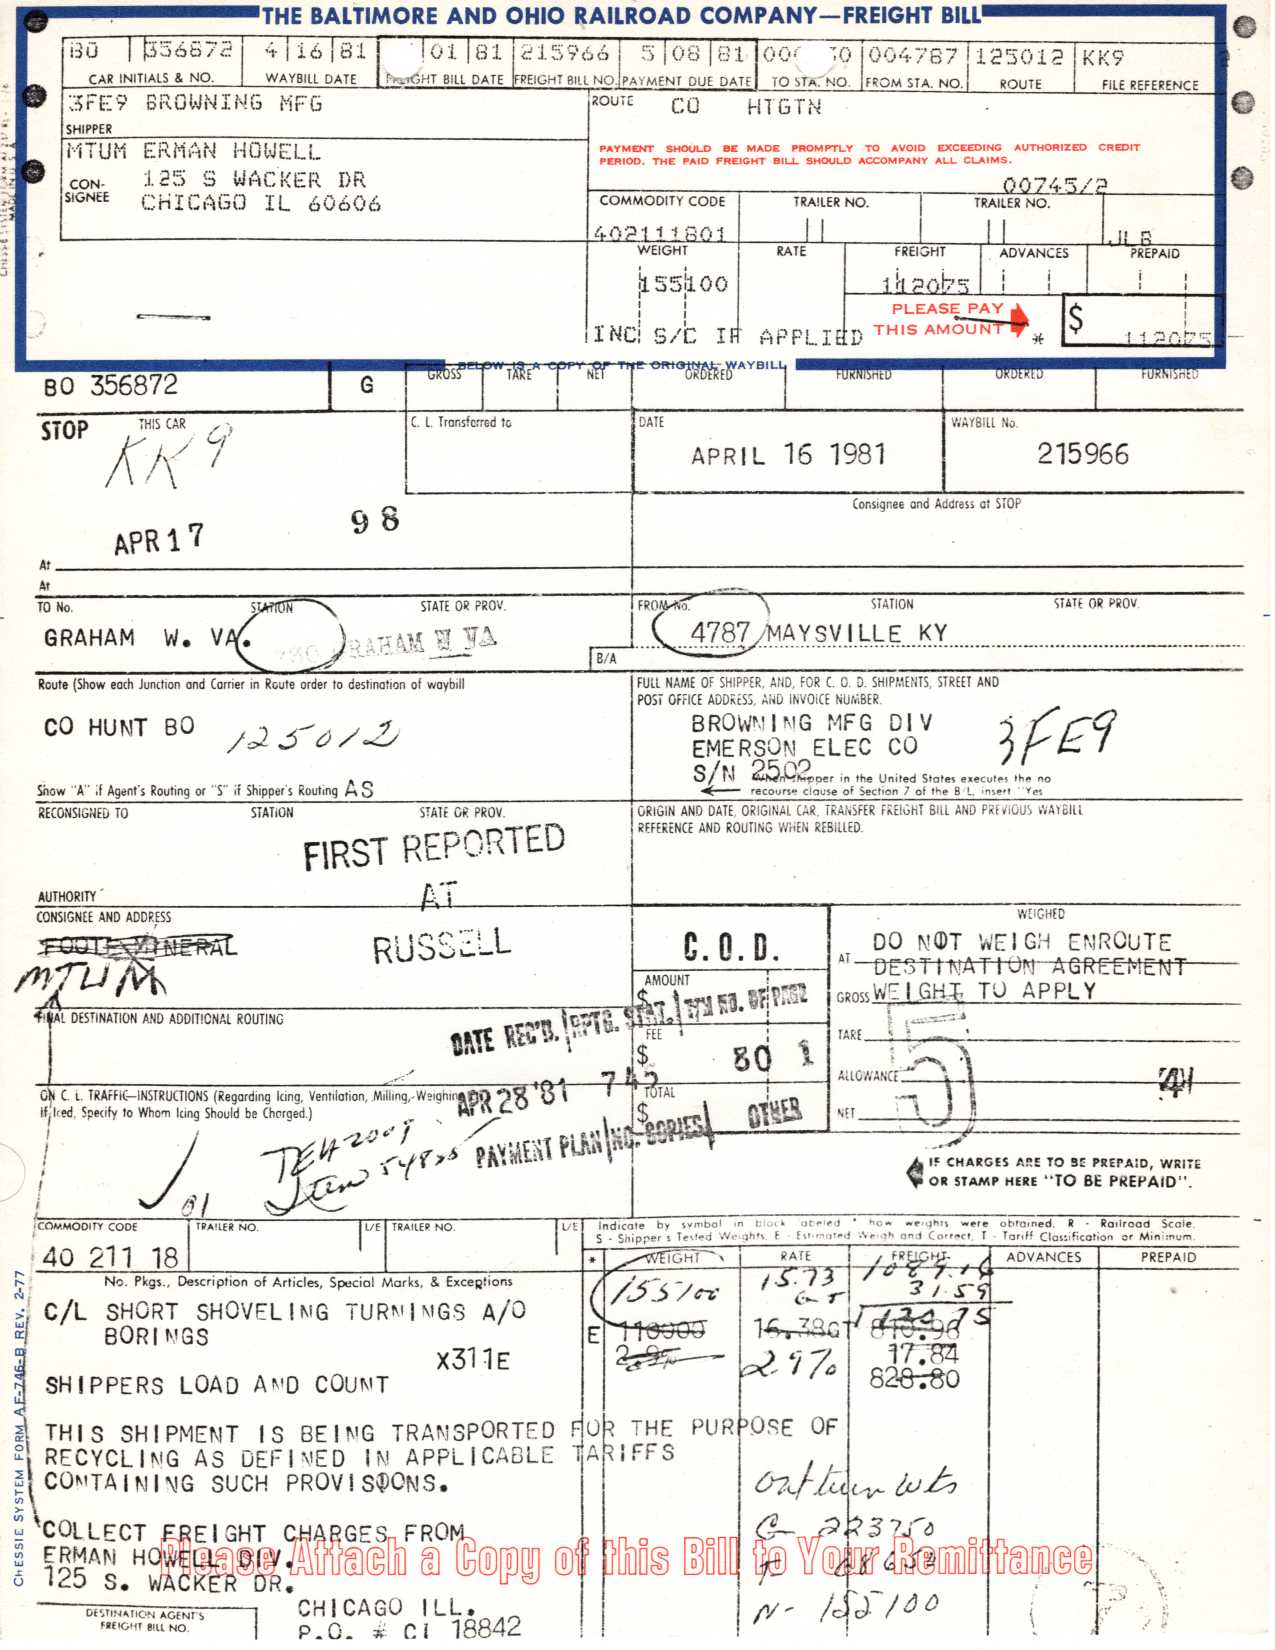 THE BALTIMORE AND OHIO RAILROAD COMPANY—FREIGHT BILL
BO 356872 4 16 81 01 81 215966 5 08 81 004787 125012 KK9
CAR INITIALS & NO. WAYBILL DATE FREIGHT BILL DATE FREIGHT BILL NO. PAYMENT DUE DATE TO STA. NO. FROM STA. NO. ROUTE FILE REFERENCE
3FE9 BROWNING MFG
SHIPPER
ROUTE CO HTGTN
MTUM ERMAN HOWELL
CON-
SIGNEE
125 S WACKER DR
CHICAGO IL 60606
PAYMENT SHOULD BE MADE PROMPTLY TO AVOID EXCEEDING AUTHORIZED CREDIT
PERIOD. THE PAID FREIGHT BILL SHOULD ACCOMPANY ALL CLAIMS.
00745/2
COMMODITY CODE TRAILER NO. TRAILER NO.
402111801 JLB
WEIGHT RATE FREIGHT ADVANCES PREPAID
155100 112075
PLEASE PAY
THIS AMOUNT * $ 112075
INC S/C IF APPLIED
BELOW IS A COPY OF THE ORIGINAL WAYBILL
BO 356872 G
GROSS TARE NET ORDERED FURNISHED ORDERED FURNISHED
STOP THIS CAR C. L. Transferred to DATE WAYBILL No.
KK9
APRIL 16 1981 215966
Consignee and Address at STOP
APR 17 98
At
At
TO No. STATION STATE OR PROV. FROM No. STATION STATE OR PROV.
GRAHAM W. VA. GRAHAM W VA 4787 MAYSVILLE KY
B/A
Route (Show each Junction and Carrier in Route order to destination of waybill
FULL NAME OF SHIPPER, AND, FOR C. O. D. SHIPMENTS, STREET AND
POST OFFICE ADDRESS, AND INVOICE NUMBER.
CO HUNT BO 125012
BROWNING MFG DIV
EMERSON ELEC CO
S/N 2502
3FE9
When shipper in the United States executes the no
recourse clause of Section 7 of the B/L, insert "Yes
Show "A" if Agent's Routing or "S" if Shipper's Routing AS
RECONSIGNED TO STATION STATE OR PROV.
ORIGIN AND DATE, ORIGINAL CAR, TRANSFER FREIGHT BILL AND PREVIOUS WAYBILL
REFERENCE AND ROUTING WHEN REBILLED.
FIRST REPORTED
AT
RUSSELL
AUTHORITY
CONSIGNEE AND ADDRESS
FOOTE MINERAL
MTUM
C. O. D.
WEIGHED
DO NOT WEIGH ENROUTE
AT DESTINATION AGREEMENT
GROSS WEIGHT TO APPLY
AMOUNT
$
FINAL DESTINATION AND ADDITIONAL ROUTING
DATE REC'D. RPTG. STAT. T/M NO. OF PAGE
FEE
$ 80 1
TARE
ALLOWANCE
5
NET
APR 28 '81 742
TOTAL
$
PAYMENT PLAN NO. COPIES OTHER
ON C. L. TRAFFIC—INSTRUCTIONS (Regarding Icing, Ventilation, Milling, Weighing
If Iced, Specify to Whom Icing Should be Charged.)
TEH 2009
Item 54825
01
IF CHARGES ARE TO BE PREPAID, WRITE
OR STAMP HERE "TO BE PREPAID".
COMMODITY CODE TRAILER NO. L/E TRAILER NO. L/E
Indicate by symbol in block labeled * how weights were obtained. R - Railroad Scale.
S - Shipper's Tested Weights, E - Estimated Weigh and Correct, T - Tariff Classification or Minimum.
40 211 18
* WEIGHT RATE FREIGHT ADVANCES PREPAID
No. Pkgs., Description of Articles, Special Marks, & Exceptions
155100 15.73 1089.16
GT 31.59
1120.75
C/L SHORT SHOVELING TURNINGS A/O
BORINGS
E 110000 16.38GT 810.96
2.9% 17.84
X311E
828.80
SHIPPERS LOAD AND COUNT
THIS SHIPMENT IS BEING TRANSPORTED FOR THE PURPOSE OF
RECYCLING AS DEFINED IN APPLICABLE TARIFFS
CONTAINING SUCH PROVISIONS.
Outturn Wts
G 223750
T 68650
N- 155100
COLLECT FREIGHT CHARGES FROM
ERMAN HOWELL DIV.
125 S. WACKER DR.
CHICAGO ILL.
P.O. # CI 18842
Please Attach a Copy of this Bill to Your Remittance
DESTINATION AGENT'S
FREIGHT BILL NO.
CHESSIE SYSTEM FORM AF-746-B REV. 2-77